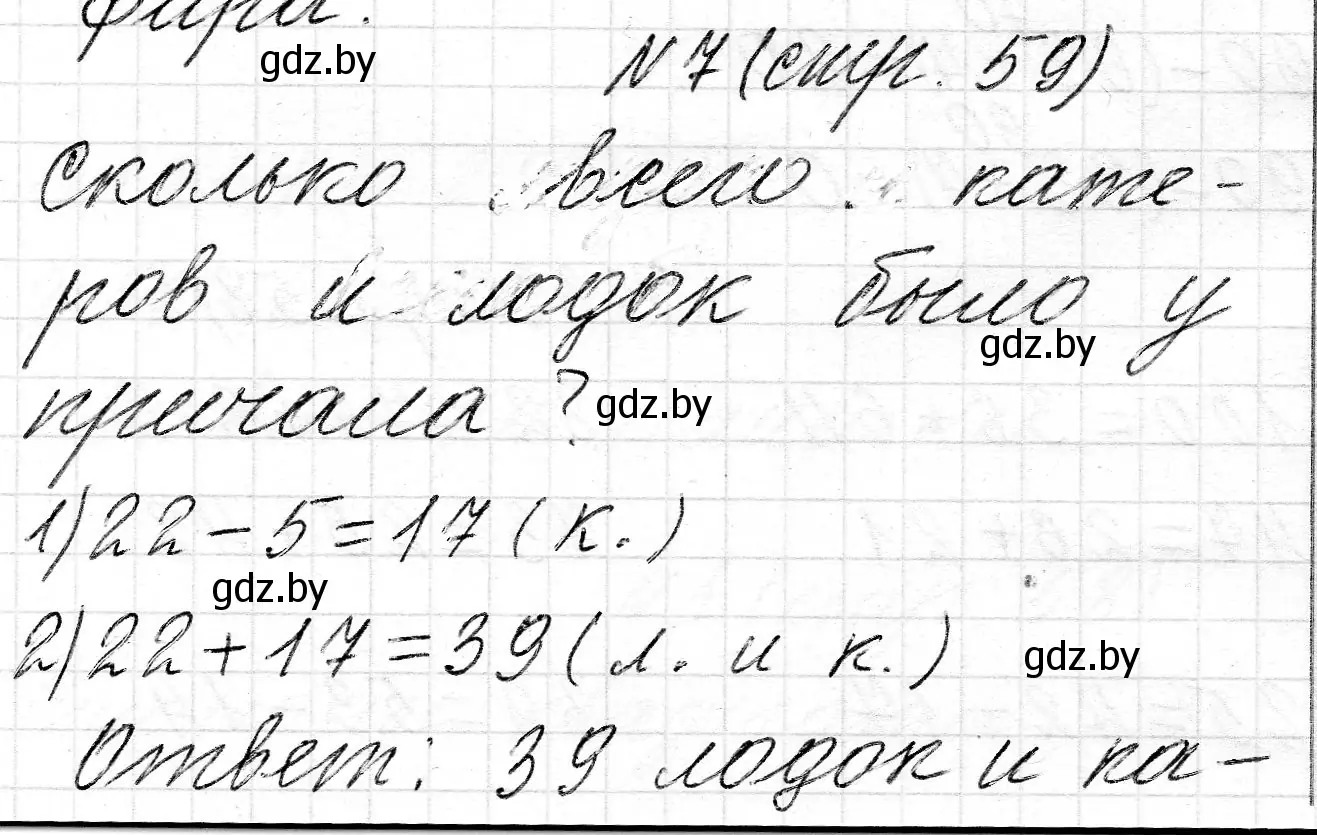 фара.
gdz.by
N 7 (стр. 59)
Сколько всего кате-
ров и лодок было у
gdz.by
причала?
gdz.by
1) 22 - 5 = 17 (к.)
gdz.by
2) 22 + 17 = 39 (л. и к.)
gdz.by
Ответ: 39 лодок и ка-